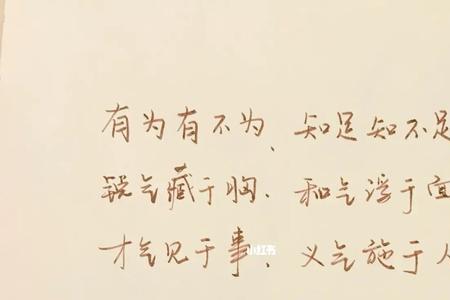 有为有不为、知足知不足
锐气藏于胸、和气浮于面
才气见于事、义气施于人
小红书